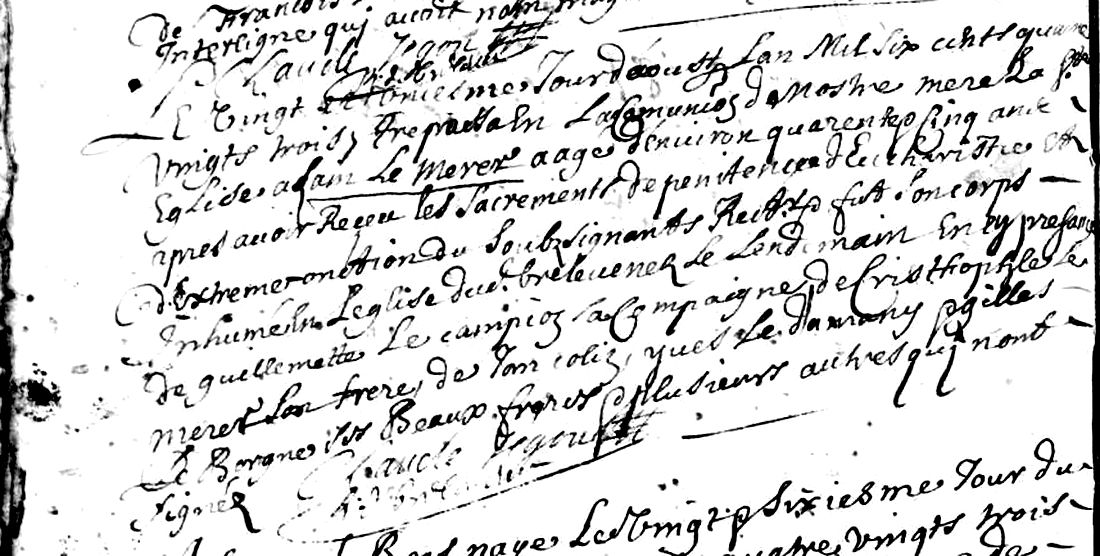 de Francois
Interligne qui avoit
Claude Jegou
Le Vingt Jour daoust Lan Mil Six cents quatre
vingts trois trepassa En La Comunion de Nostre mere La Ste
Eglise adam Le Meret aage denviron quarente Sinq ans
apres avoir Receu les Sacrements de penitence dEucharistie Et
dExtreme onction du Soubzsignants Rectr fut Son corps
Inhumé En Leglise dud. brelevenez Le Lendemain En presance
de guillemette Le campion sa Compaigne, de Cristhophle Le
meret Son frere, de Jan coliz, yves Le gilles
Le Borgne ses Beaux freres Plusieurs autres qui nont
Signéz
Claude Jegou
Le Vingt Sixiesme Jour du
quatre vingts trois